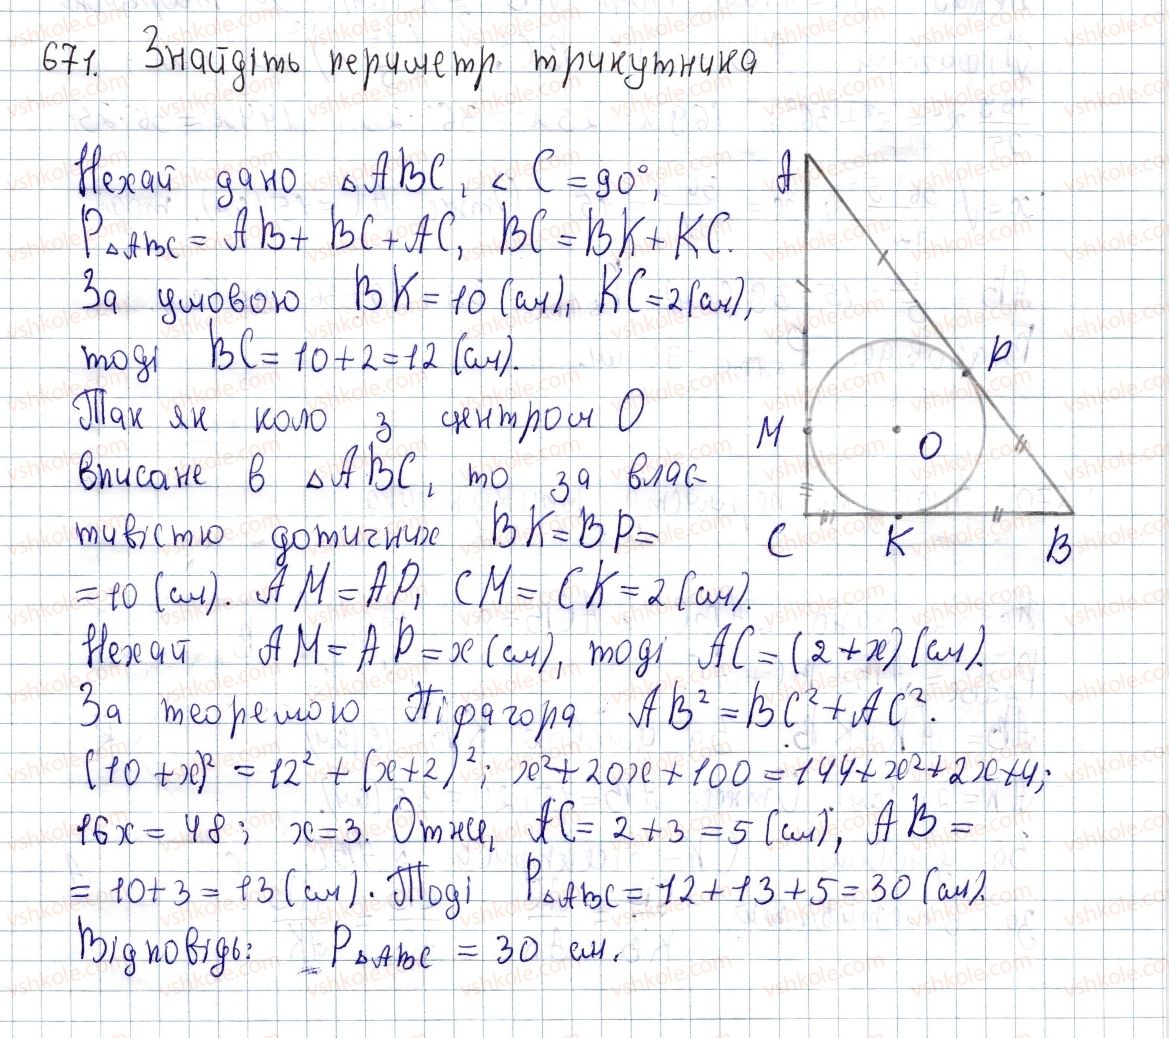 671. Знайдіть периметр трикутника
Нехай дано △ABC, < C = 90°,
P△ABC = AB + BC + AC, BC = BK + KC.
За умовою BK = 10 (см), KC = 2 (см),
тоді BC = 10 + 2 = 12 (см).
Так як коло з центром O
вписане в △ABC, то за влас-
тивістю дотичних BK = BP =
= 10 (см). AM = AP, CM = CK = 2 (см).
Нехай AM = AP = x (см), тоді AC = (2 + x) (см).
За теоремою Піфагора AB² = BC² + AC².
(10 + x)² = 12² + (x + 2)²; x² + 20x + 100 = 144 + x² + 2x + 4;
16x = 48; x = 3. Отже, AC = 2 + 3 = 5 (см), AB =
= 10 + 3 = 13 (см). Тоді P△ABC = 12 + 13 + 5 = 30 (см).
Відповідь: P△ABC = 30 см.
A
P
M
O
C
K
B
vshkole.com